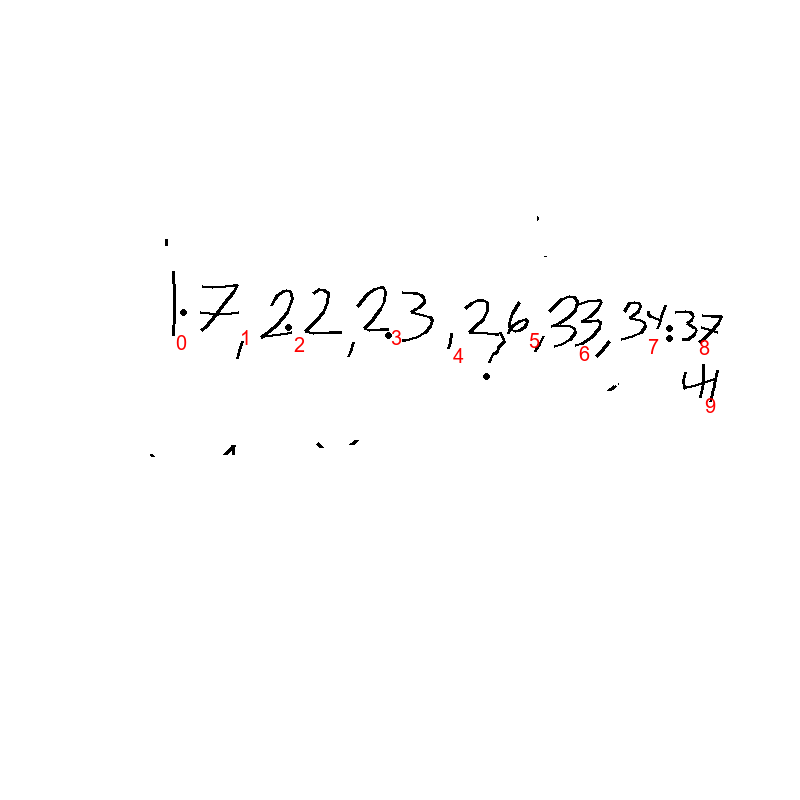 1.7, 22, 23, 2,6, 33, 34:37
0 1 2 3 4 5 6 7 8
41
9